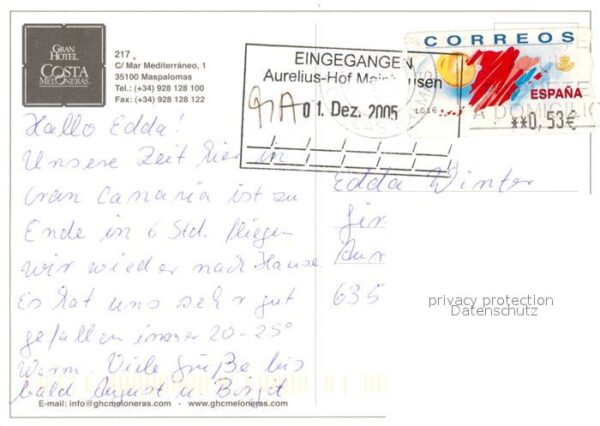 GRAN
HOTEL
COSTA
MELONERAS
217
C/ Mar Mediterráneo, 1
35100 Maspalomas
Tel.: (+34) 928 128 100
Fax: (+34) 928 128 122
CORREOS
ESPAÑA
**0,53€
1616
A DOMICILIO
EINGEGANGEN
Aurelius-Hof Mainhausen
01. Dez. 2005
Hallo Edda!
Unsere Zeit hier in
Gran Canaria ist zu
Ende in 6 Std. fliegen
wir wieder nach Hause
Es hat uns sehr gut
gefallen immer 20-25°
Warm. Viele Grüße bis
bald August u. Birgit
Edda Winter
635
privacy protection
Datenschutz
E-mail: info@ghcmeloneras.com - www.ghcmeloneras.com